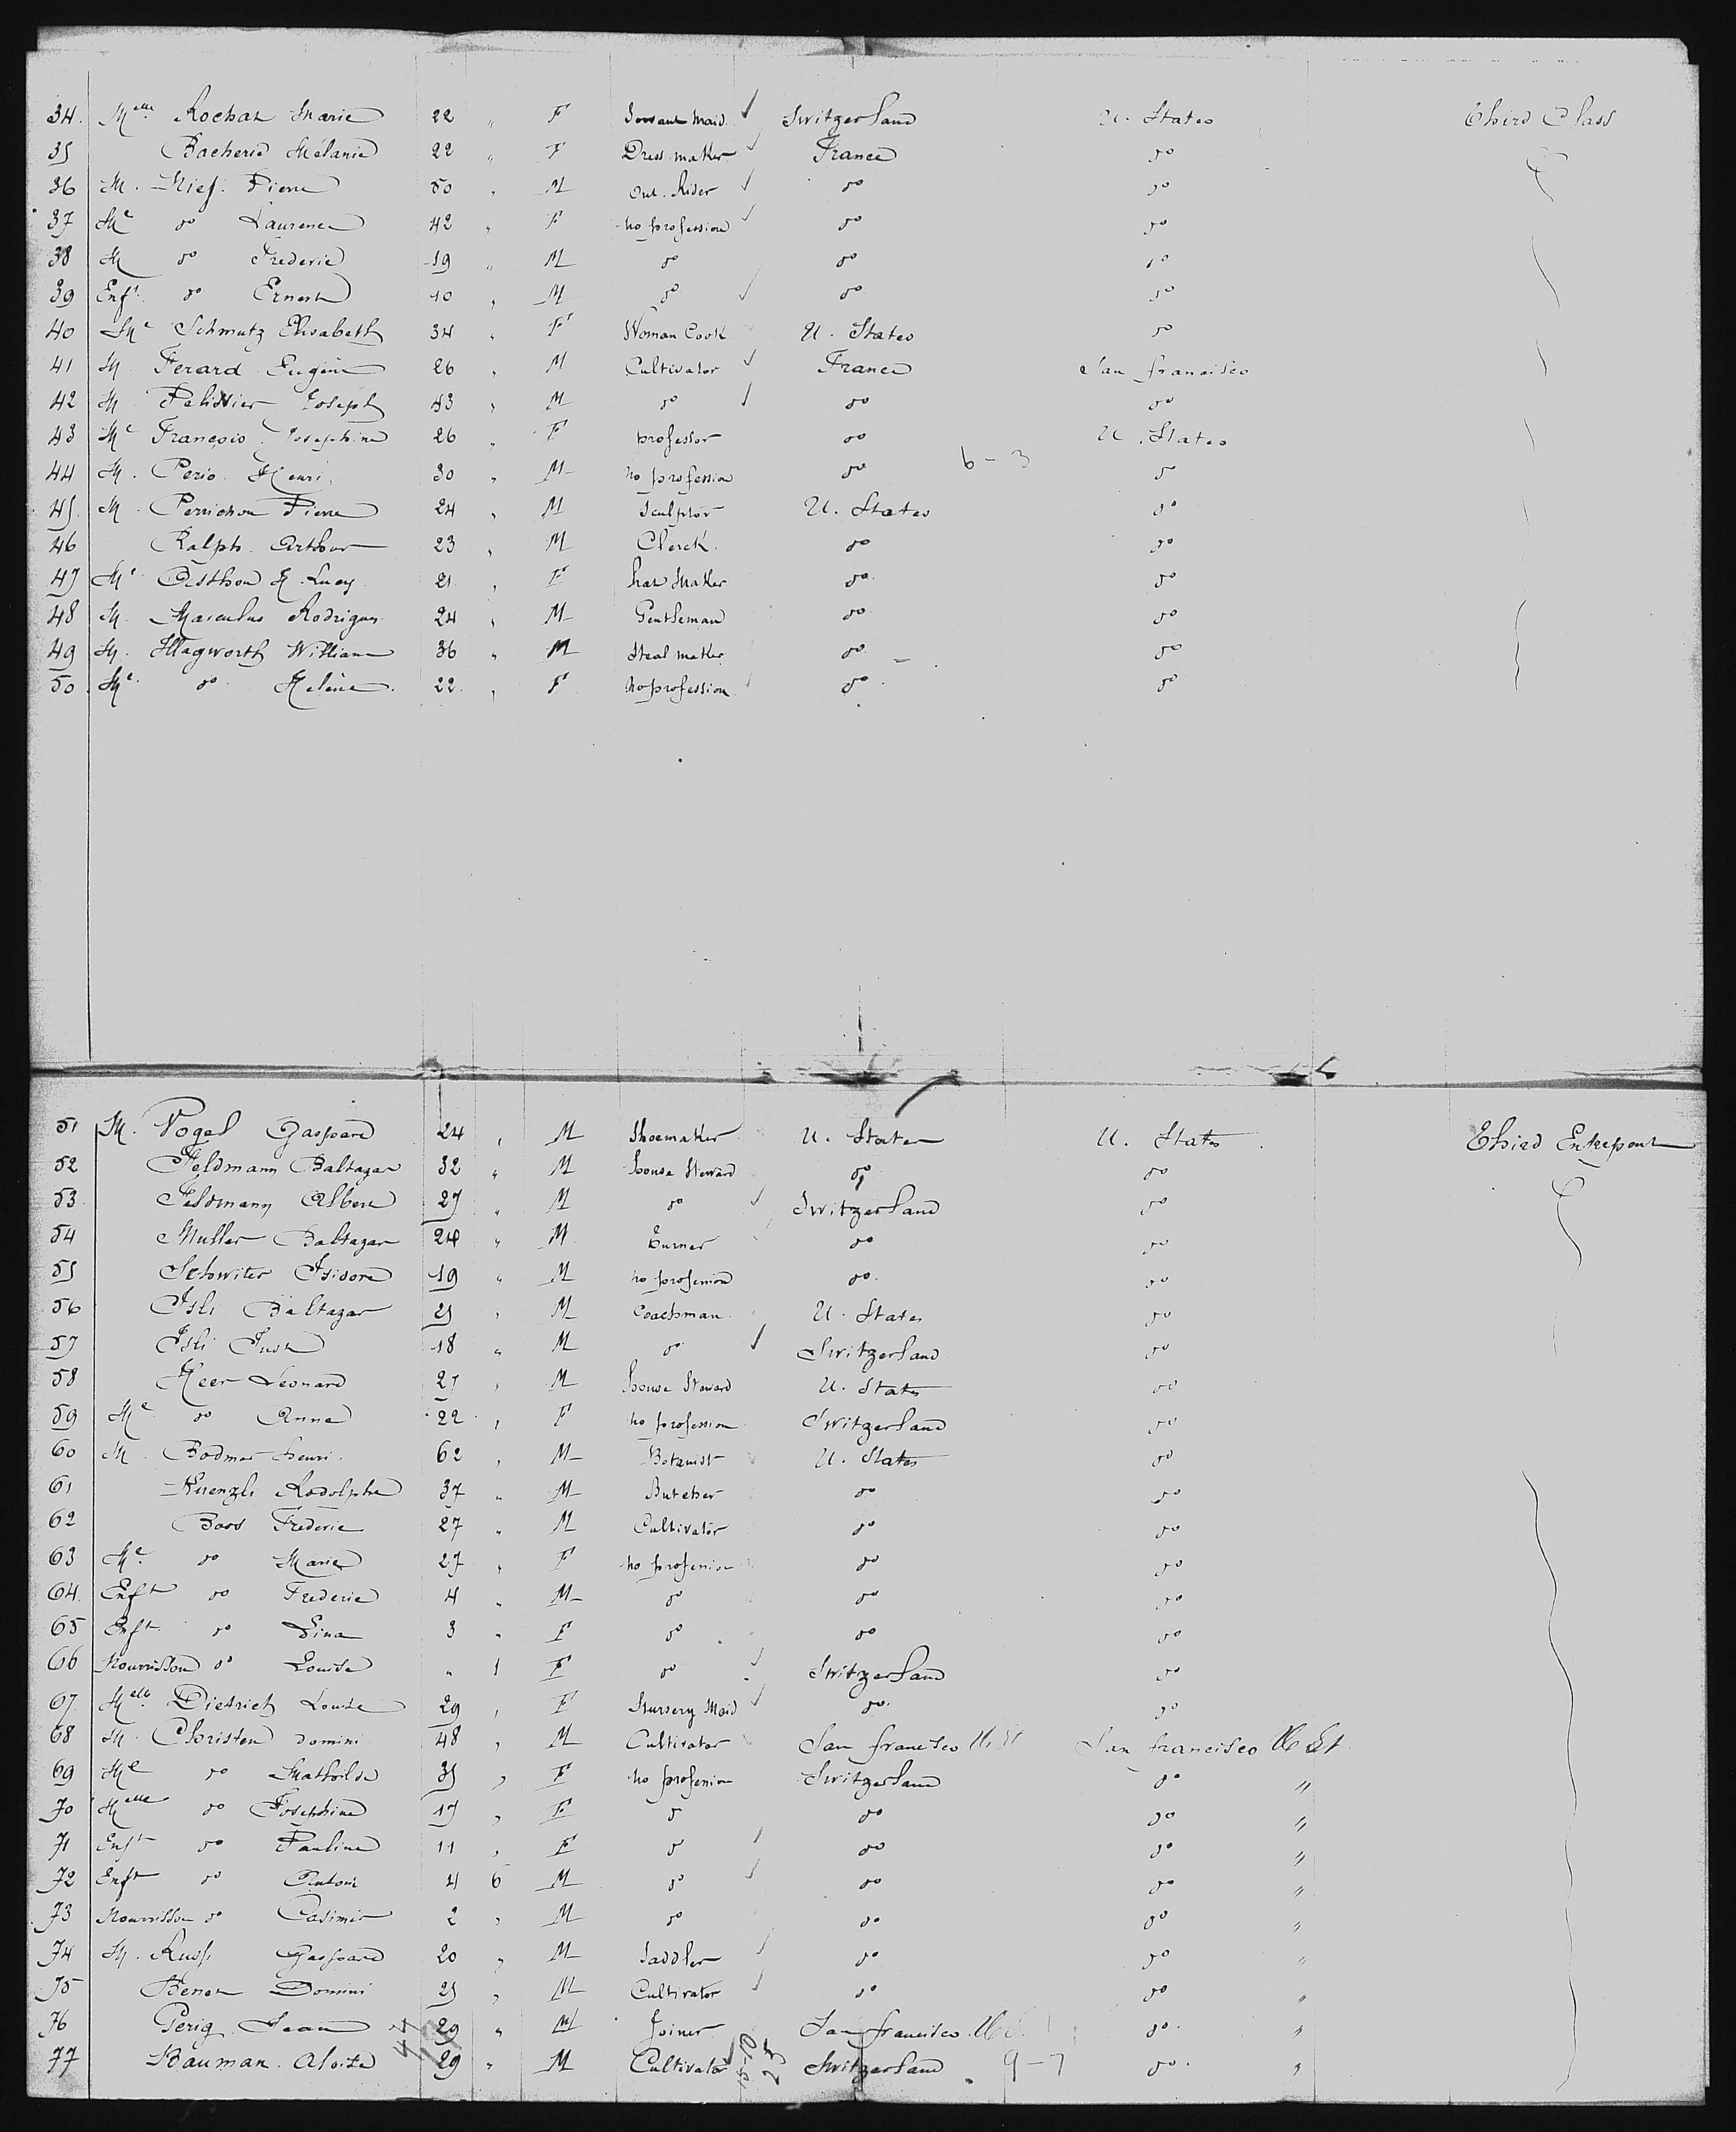 34. Melle Rochat Marie 22 " F Servant Maid Switzerland U. States Third Class
35 Bacherid Mélanie 22 " F Dress maker France do
36 M. Pierre 50 " M Out. Rider do do
37 Me do Laurence 42 " F no profession do do
38 M do Frederic 19 " M do do do
39 Enft do Ernest 10 " M do do do
40 Me Schmutz Elisabeth 34 " F Woman Cook U. States do
41 M Ferard Eugène 26 " M Cultivator France San francisco
42 M Pelissier Joseph 43 " M do do do
43 Me François Josephine 26 " F professor do U. States
44 M. Perio Henri 30 " M no profession do 6-3 do
45. M. Perrichon Pierre 24 " M Sculptor U. States do
46 Ralph Arthur 23 " M Clerck do do
47 Me H. Lucy 21 " F hat Maker do do
48 M. Rodrigues 24 " M Gentleman do do
49 M. William 36 " M Steal maker do do
50 Me do Helène 22 " F no profession do do
51 M. Vogel Gaspard 24 " M Shoemaker U. States U. States Third Entrepont
52 Feldmann Baltazar 32 " M house Steward do do
53 Feldmann Albert 27 " M do Switzerland do
54 Muller Baltazar 24 " M Turner do do
55 Schwiter Isidore 19 " M no profession do do
56 Isli Baltazar 25 " M Coachman U. States do
57 Isli Just 18 " M do Switzerland do
58 Heer Leonard 27 " M house Steward U. States do
59 Me do Anna 22 " F no profession Switzerland do
60 M. Bodmer henri 62 " M Botanist U. States do
61 Kuenzli Rodolphe 37 " M Butcher do do
62 Boos Frederic 27 " M Cultivator do do
63 Me do Marie 27 " F no profession do do
64. Enft do Frederic 4 " M do do do
65 Enft do Lina 3 " F do do do
66 Nourrisson do Louise " 1 F do Switzerland do
67 Melle Dietrich Louise 29 " F Nursery Maid do do
68 M. Christen Domini 48 " M Cultivator San francisco U. St San francisco U St
69 Me do Mathilde 35 " F no profession Switzerland do "
70 Melle do Josephine 17 " F do do do "
71 Enft do Pauline 11 " F do do do "
72 Enft do Antoine 4 6 M do do do "
73 Nourrisson do Casimir 2 " M do do do "
74 M. Russ Gaspard 20 " M Saddler do do "
75 Domini 25 " M Cultivator do do "
76 Perig Jean 29 " M Joiner San francisco U. S. do "
77 Bauman Aloise 29 " M Cultivator Switzerland 9-7 do "